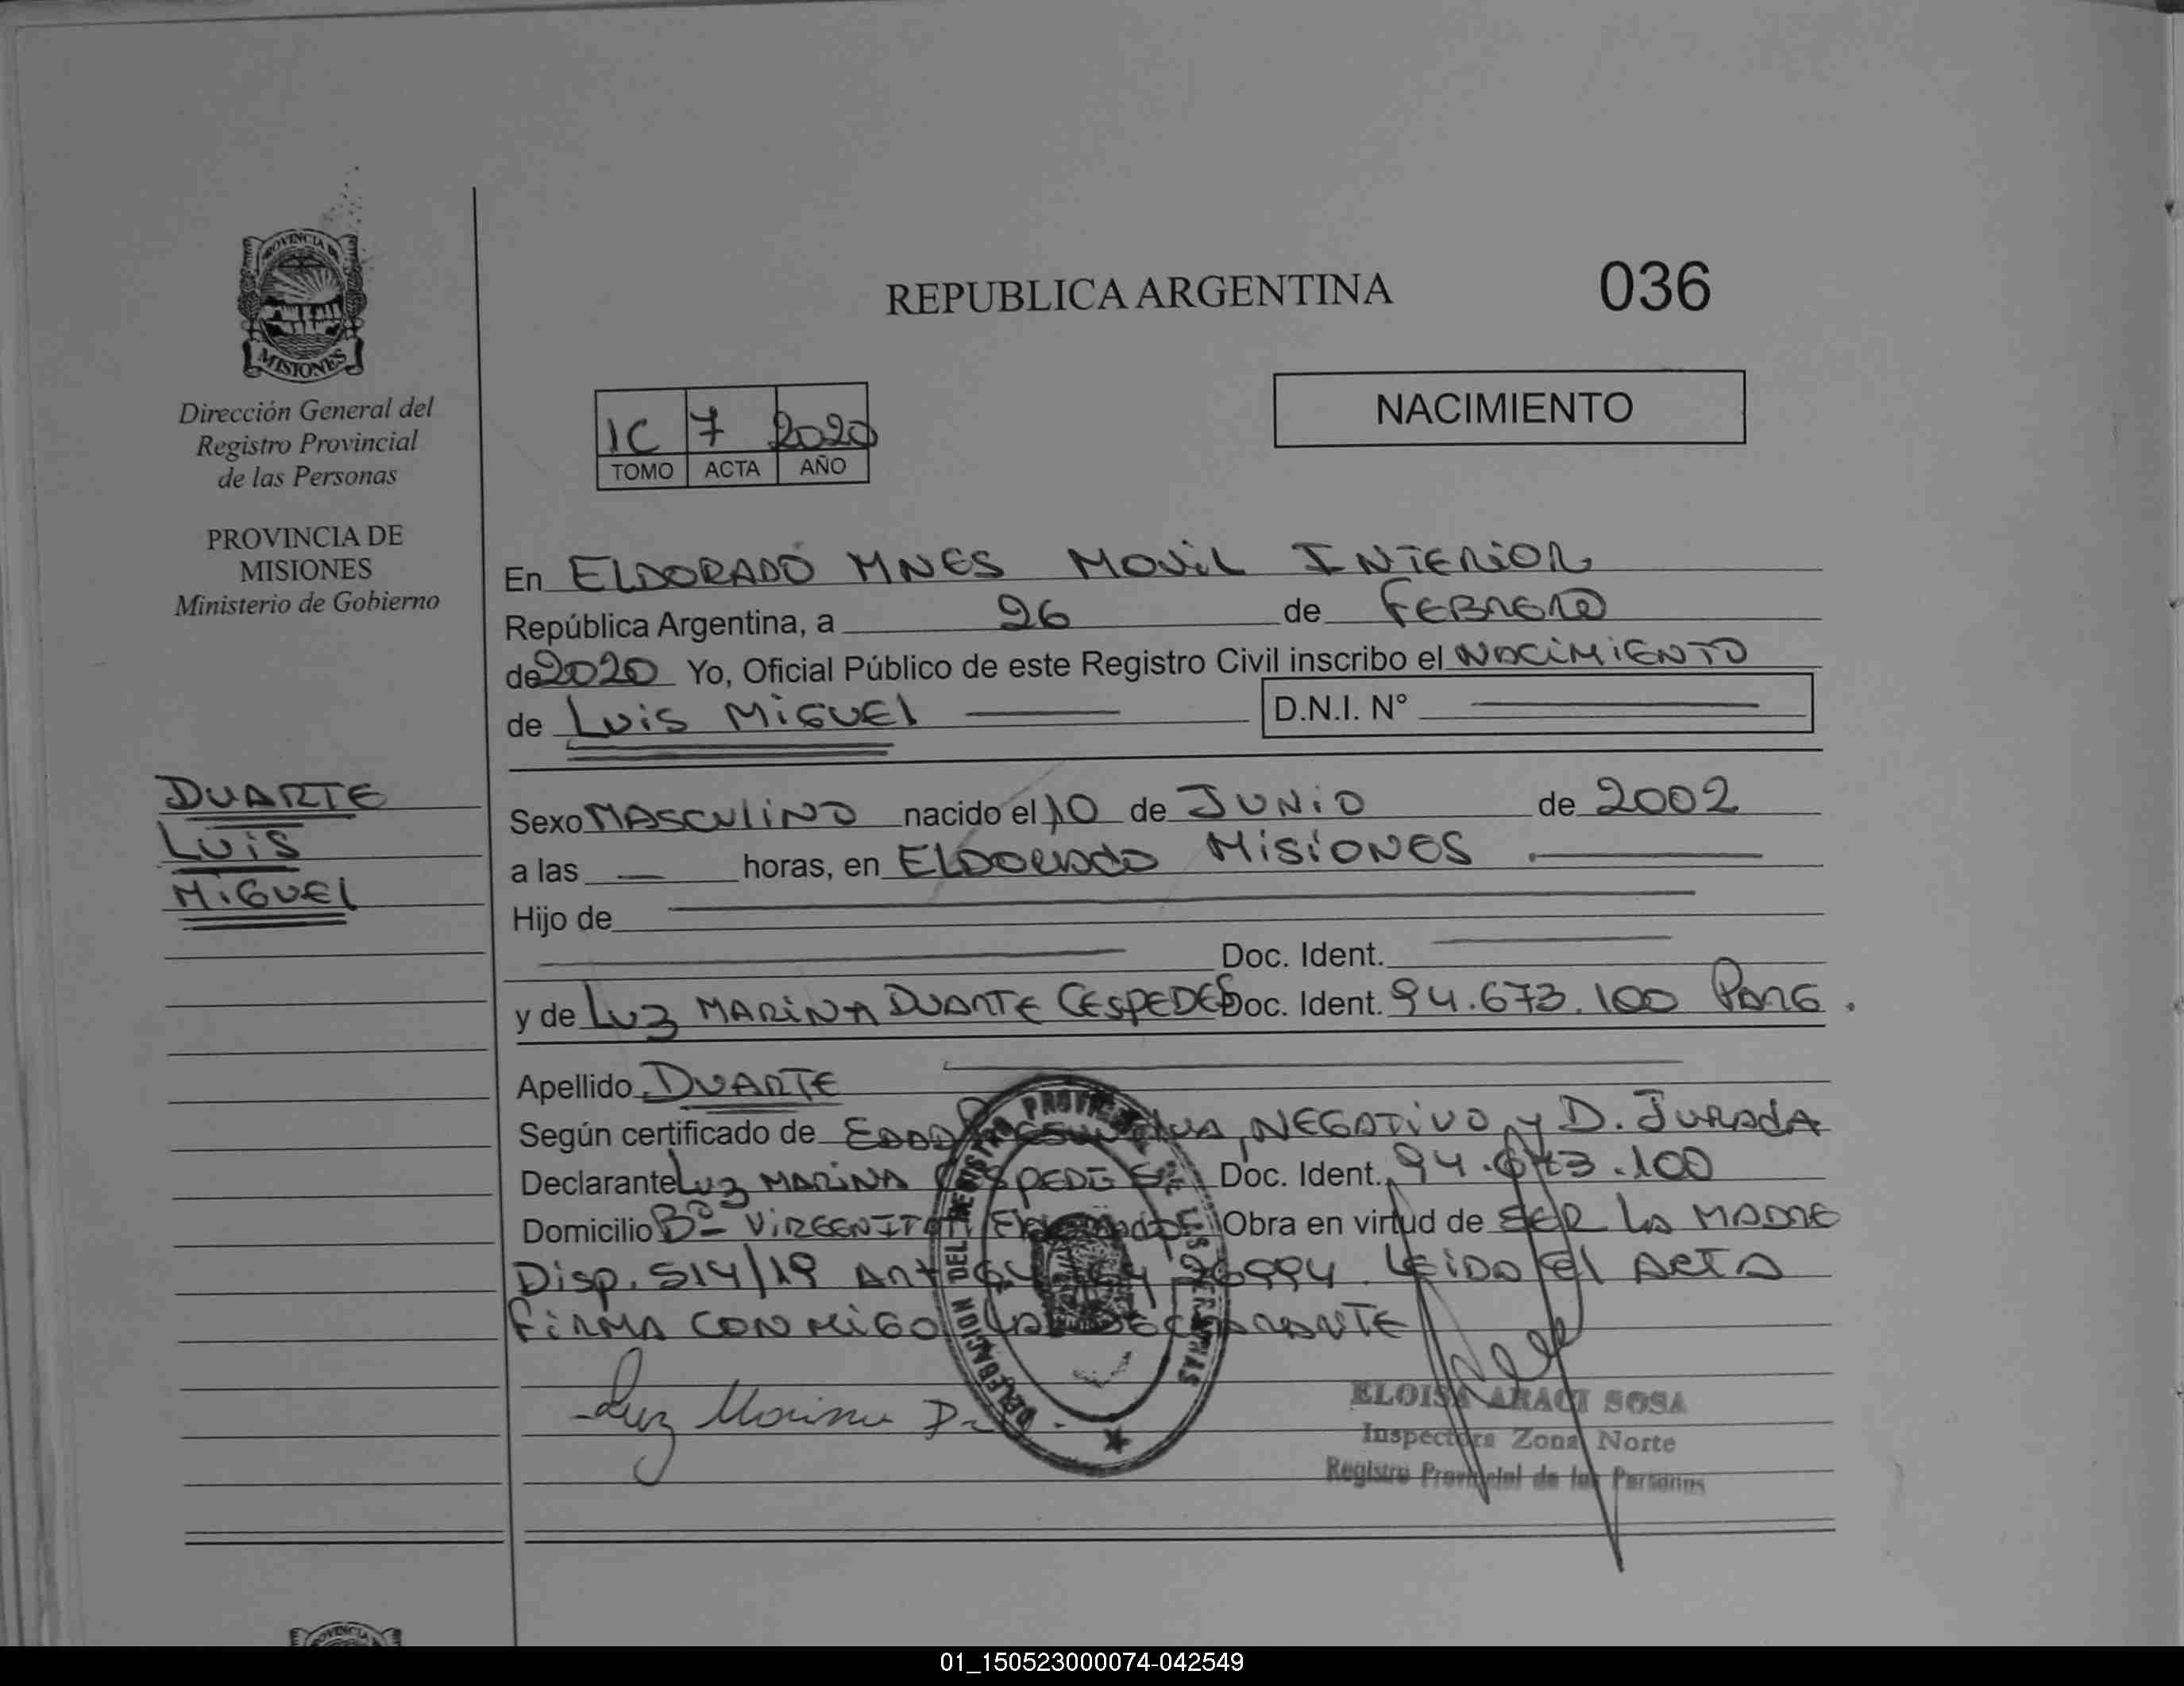 PROVINCIA DE
MISIONES
Dirección General del
Registro Provincial
de las Personas
PROVINCIA DE
MISIONES
Ministerio de Gobierno
DUARTE
LUIS
MIGUEL
REPUBLICA ARGENTINA
036
NACIMIENTO
1C 7 2020
TOMO ACTA AÑO
En ELDORADO MNES MOVIL INTERIOR
República Argentina, a 26 de FEBRERO
de 2020 Yo, Oficial Público de este Registro Civil inscribo el NACIMIENTO
de LUIS MIGUEL D.N.I. Nº
Sexo MASCULINO nacido el 10 de JUNIO de 2002
a las horas, en ELDORADO MISIONES
Hijo de
Doc. Ident.
y de LUZ MARINA DUARTE CESPEDES Doc. Ident. 94.673.100 PARG.
Apellido DUARTE
Según certificado de EDAD NEGATIVO y D. JURADA
Declarante LUZ MARINA CESPEDES Doc. Ident. 94.673.100
Domicilio Bº VIRGENITA Obra en virtud de SER LA MADRE
Disp. 514/19 Art 26994. LEIDO El ACTA
FIRMA CONMIGO LA DECLARANTE
Luz Marina D
DELEGACION DEL REGISTRO PROVINCIAL DE LAS PERSONAS
ELOISA ARACI SOSA
Inspectora Zona Norte
Registro Provincial de las Personas
01_150523000074-042549